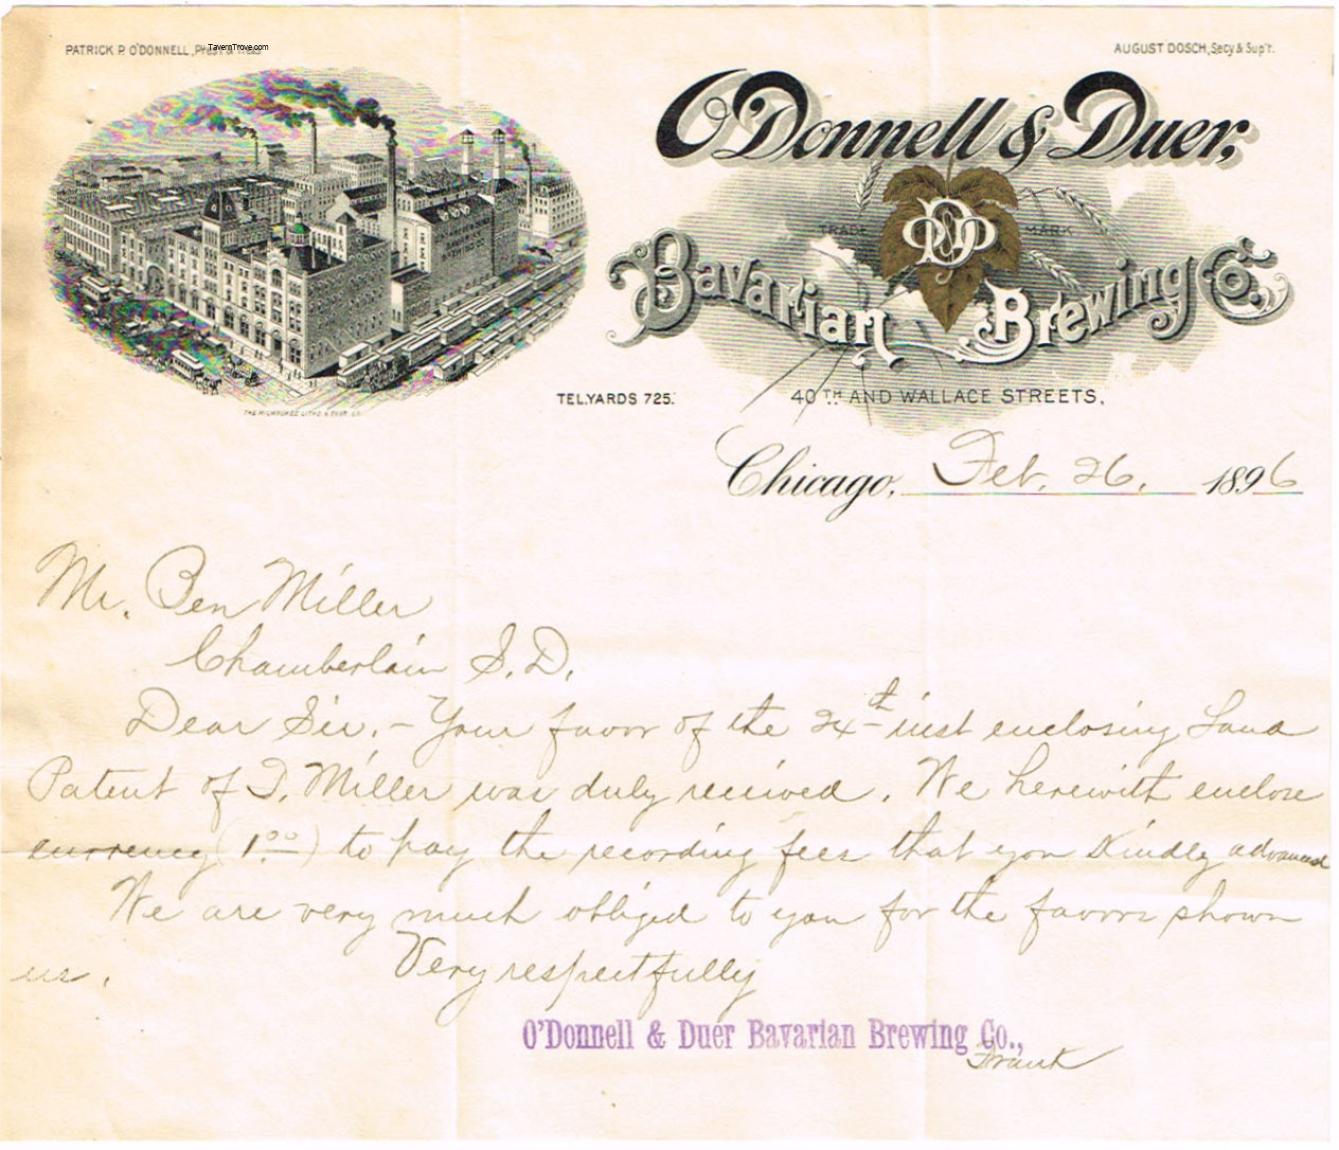 PATRICK P. O'DONNELL, Pres't & Treas
TavernTrove.com
AUGUST DOSCH, Secy & Sup't.
O'Donnell & Duer,
TRADE MARK
Bavarian Brewing Co.
THE MILWAUKEE LITHO. & ENGR. CO.
TEL. YARDS 725.
40TH AND WALLACE STREETS,
Chicago, Feb. 26, 1896
Mr. Ben Miller
Chamberlain S.D.
Dear Sir, - Your favor of the 24th inst enclosing Land
Patent of D. Miller was duly received. We herewith enclose
currency (1.00) to pay the recording fees that you kindly advanced
We are very much obliged to you for the favors shown
us.
Very respectfully
O'Donnell & Duer Bavarian Brewing Co.,
Frank